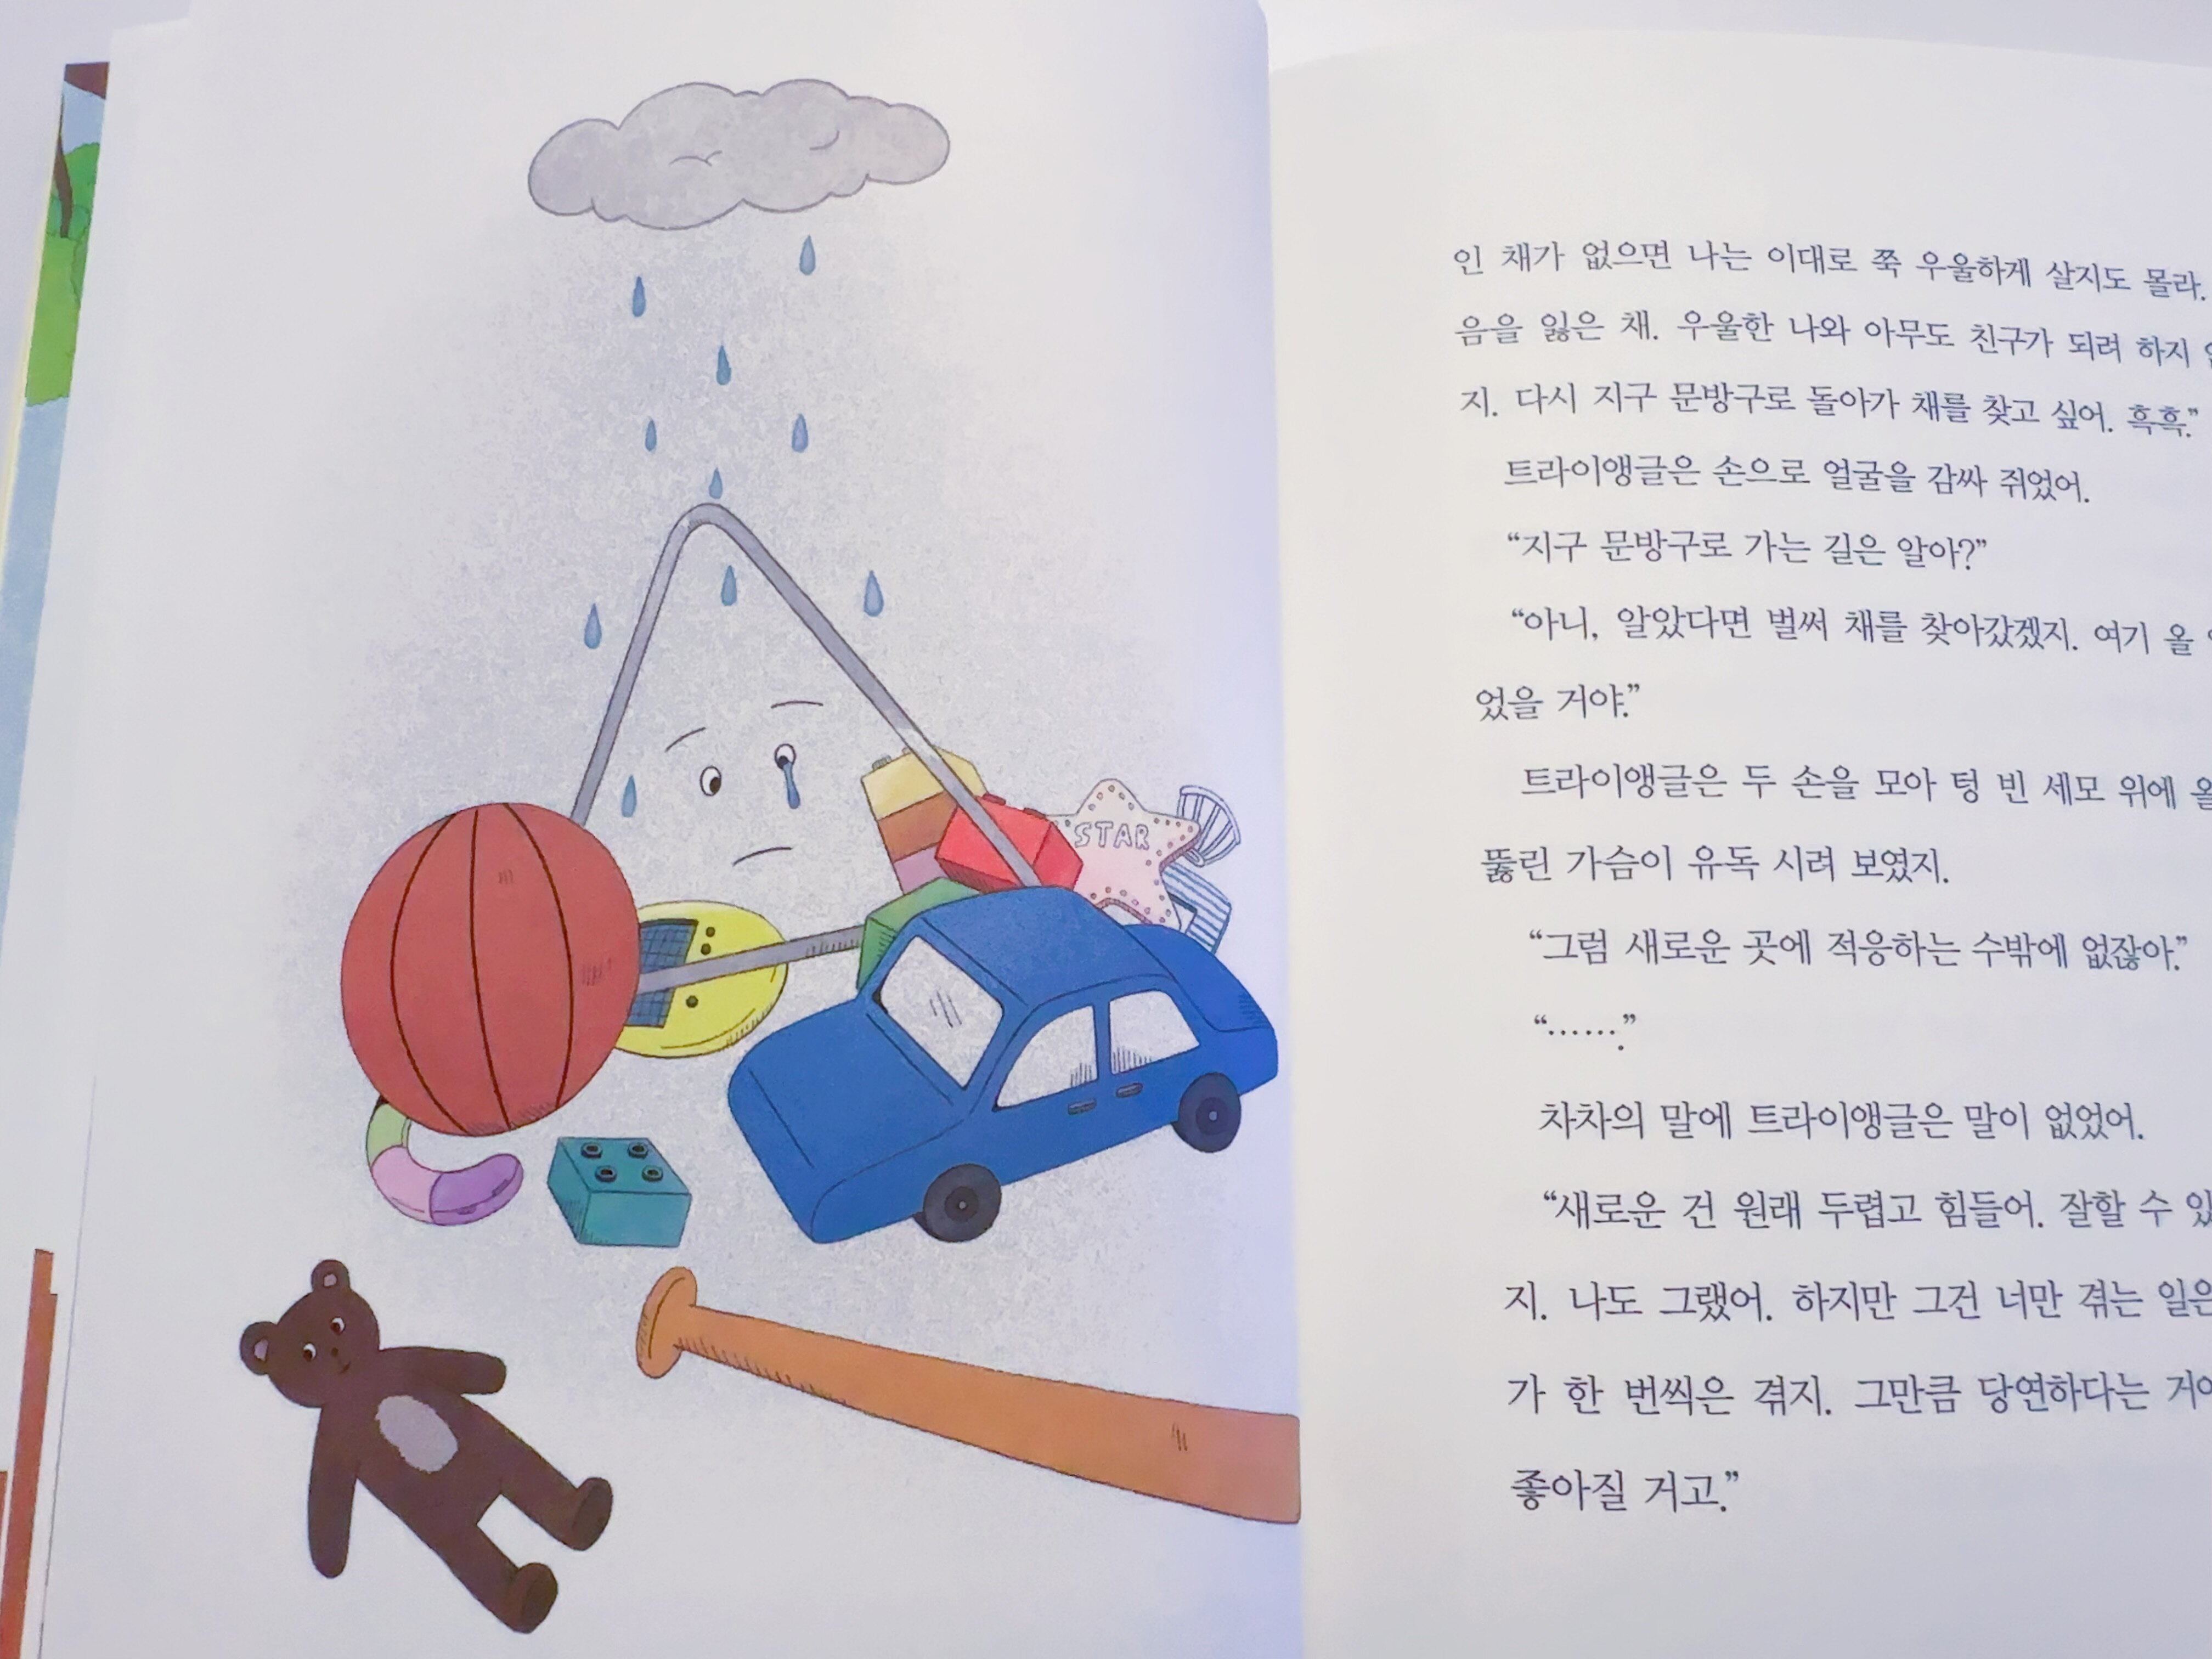 STAR
인 채가 없으면 나는 이대로 쭉 우울하게 살지도 몰라.
음을 잃은 채. 우울한 나와 아무도 친구가 되려 하지
지. 다시 지구 문방구로 돌아가 채를 찾고 싶어. 흑흑.”
트라이앵글은 손으로 얼굴을 감싸 쥐었어.
“지구 문방구로 가는 길은 알아?”
“아니, 알았다면 벌써 채를 찾아갔겠지. 여기 올
었을 거야.”
트라이앵글은 두 손을 모아 텅 빈 세모 위에
뚫린 가슴이 유독 시려 보였지.
“그럼 새로운 곳에 적응하는 수밖에 없잖아.”
“…….”
차차의 말에 트라이앵글은 말이 없었어.
“새로운 건 원래 두렵고 힘들어. 잘할 수
지. 나도 그랬어. 하지만 그건 너만 겪는 일은
가 한 번씩은 겪지. 그만큼 당연하다는
좋아질 거고.”